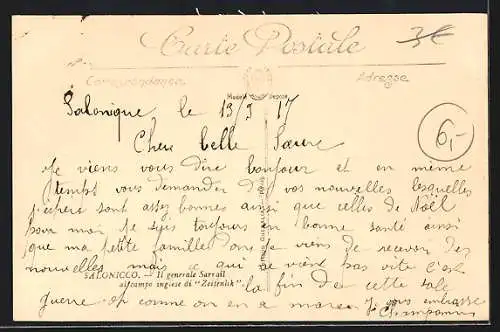 Carte Postale
3€
Correspondance
Adresse
Salonique, le 13/3 17
6,-
Chere belle Sœur
Je viens vous dire bonjour et en même
temps vous demander de vos nouvelles lesquelles
j'espère sont assez bonnes ainsi que celles de Noël
pour moi je suis toujours en bonne santé ainsi
que ma petite famille dont je viens de recevoir des
nouvelles mais ce qui ne vient pas vite c'est
SALONICCO. — Il generale Sarrail
al campo inglese di "Zeitenlik".
la fin de cette sale
guerre et comme on en a marre. je vous embrasse